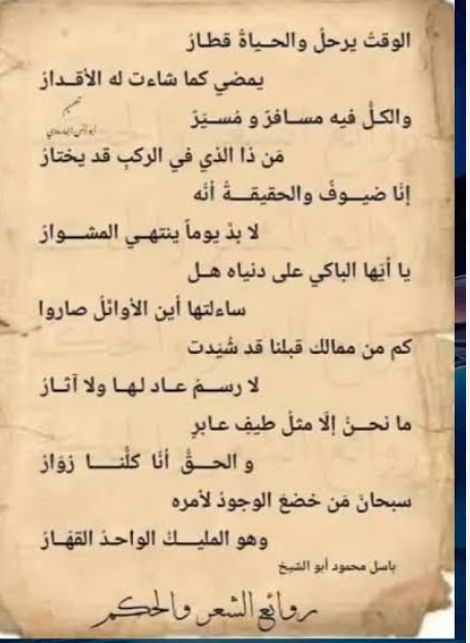 الوقتُ يرحلُ والحـياةُ قطـارُ
يمضي كما شاءت له الأقـدارُ
تصميم
والكـلُّ فيه مسـافرٌ و مُسـيَرٌ
مَن ذا الذي في الركبِ قد يختارُ
إنّا ضيــوفٌ والحقيقــةُ أنّه
لا بدَّ يوماً ينتهـي المشــوارُ
يا أيّها الباكي على دنياه هـل
ساءلتها أين الأوائلُ صاروا
كم من ممالك قبلنا قد شُيّدت
لا رســمَ عـاد لهـا ولا آثـارُ
ما نحــنُ إلّا مثلُ طيفٍ عـابرٍ
و الحــقُّ أنّا كلّنــا زوّارُ
سبحانَ مَن خضعَ الوجودُ لأمره
وهو المليــكُ الواحـدُ القهّـارُ
باسل محمود أبو الشيخ
روائع الشعر والحكم